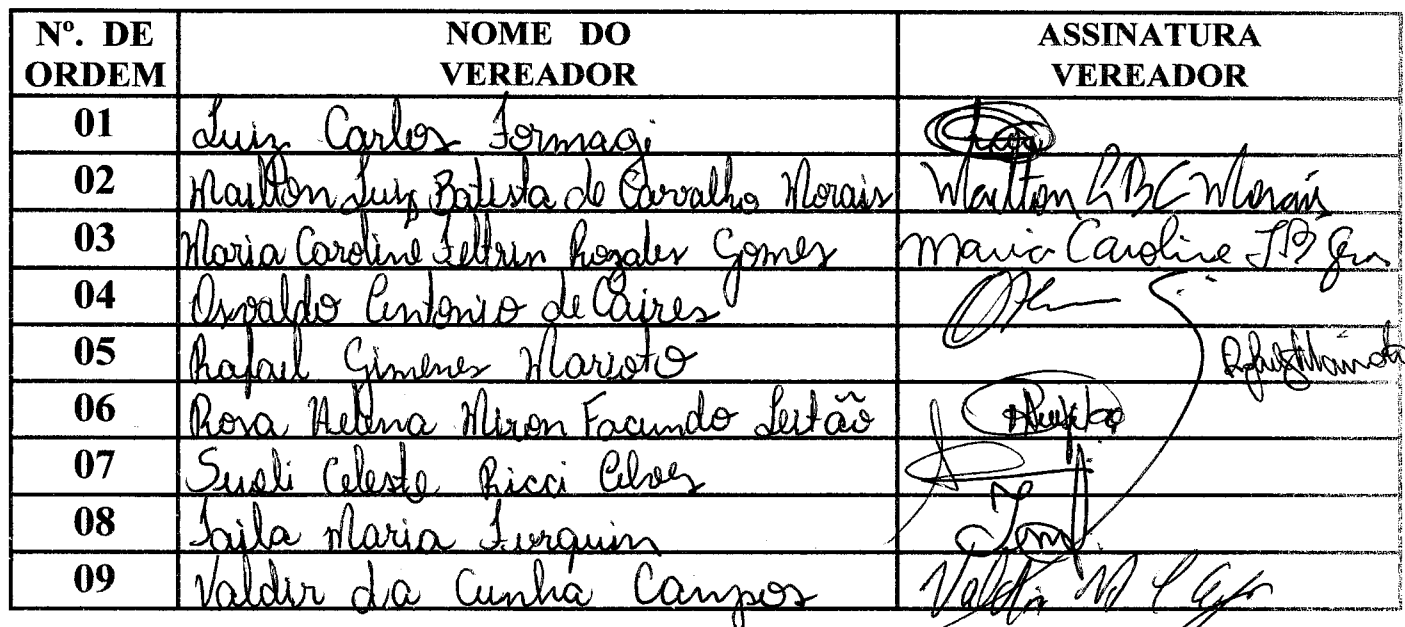 Nº. DE ORDEM NOME DO VEREADOR ASSINATURA VEREADOR
01 Luiz Carlos Formagi
02 Mailton Luiz Batista de Carvalho Morais Mailton L B C Morais
03 Maria Caroline Feltrin Rozales Gomes Maria Caroline
04 Osvaldo Antonio de Caires
05 Rafael Gimenes Marioto
06 Rosa Helena Miron Facundo Leitão
07 Sueli Celeste Ricci Alves
08 Taila Maria Furquim
09 Valdir da Cunha Campos Valdir